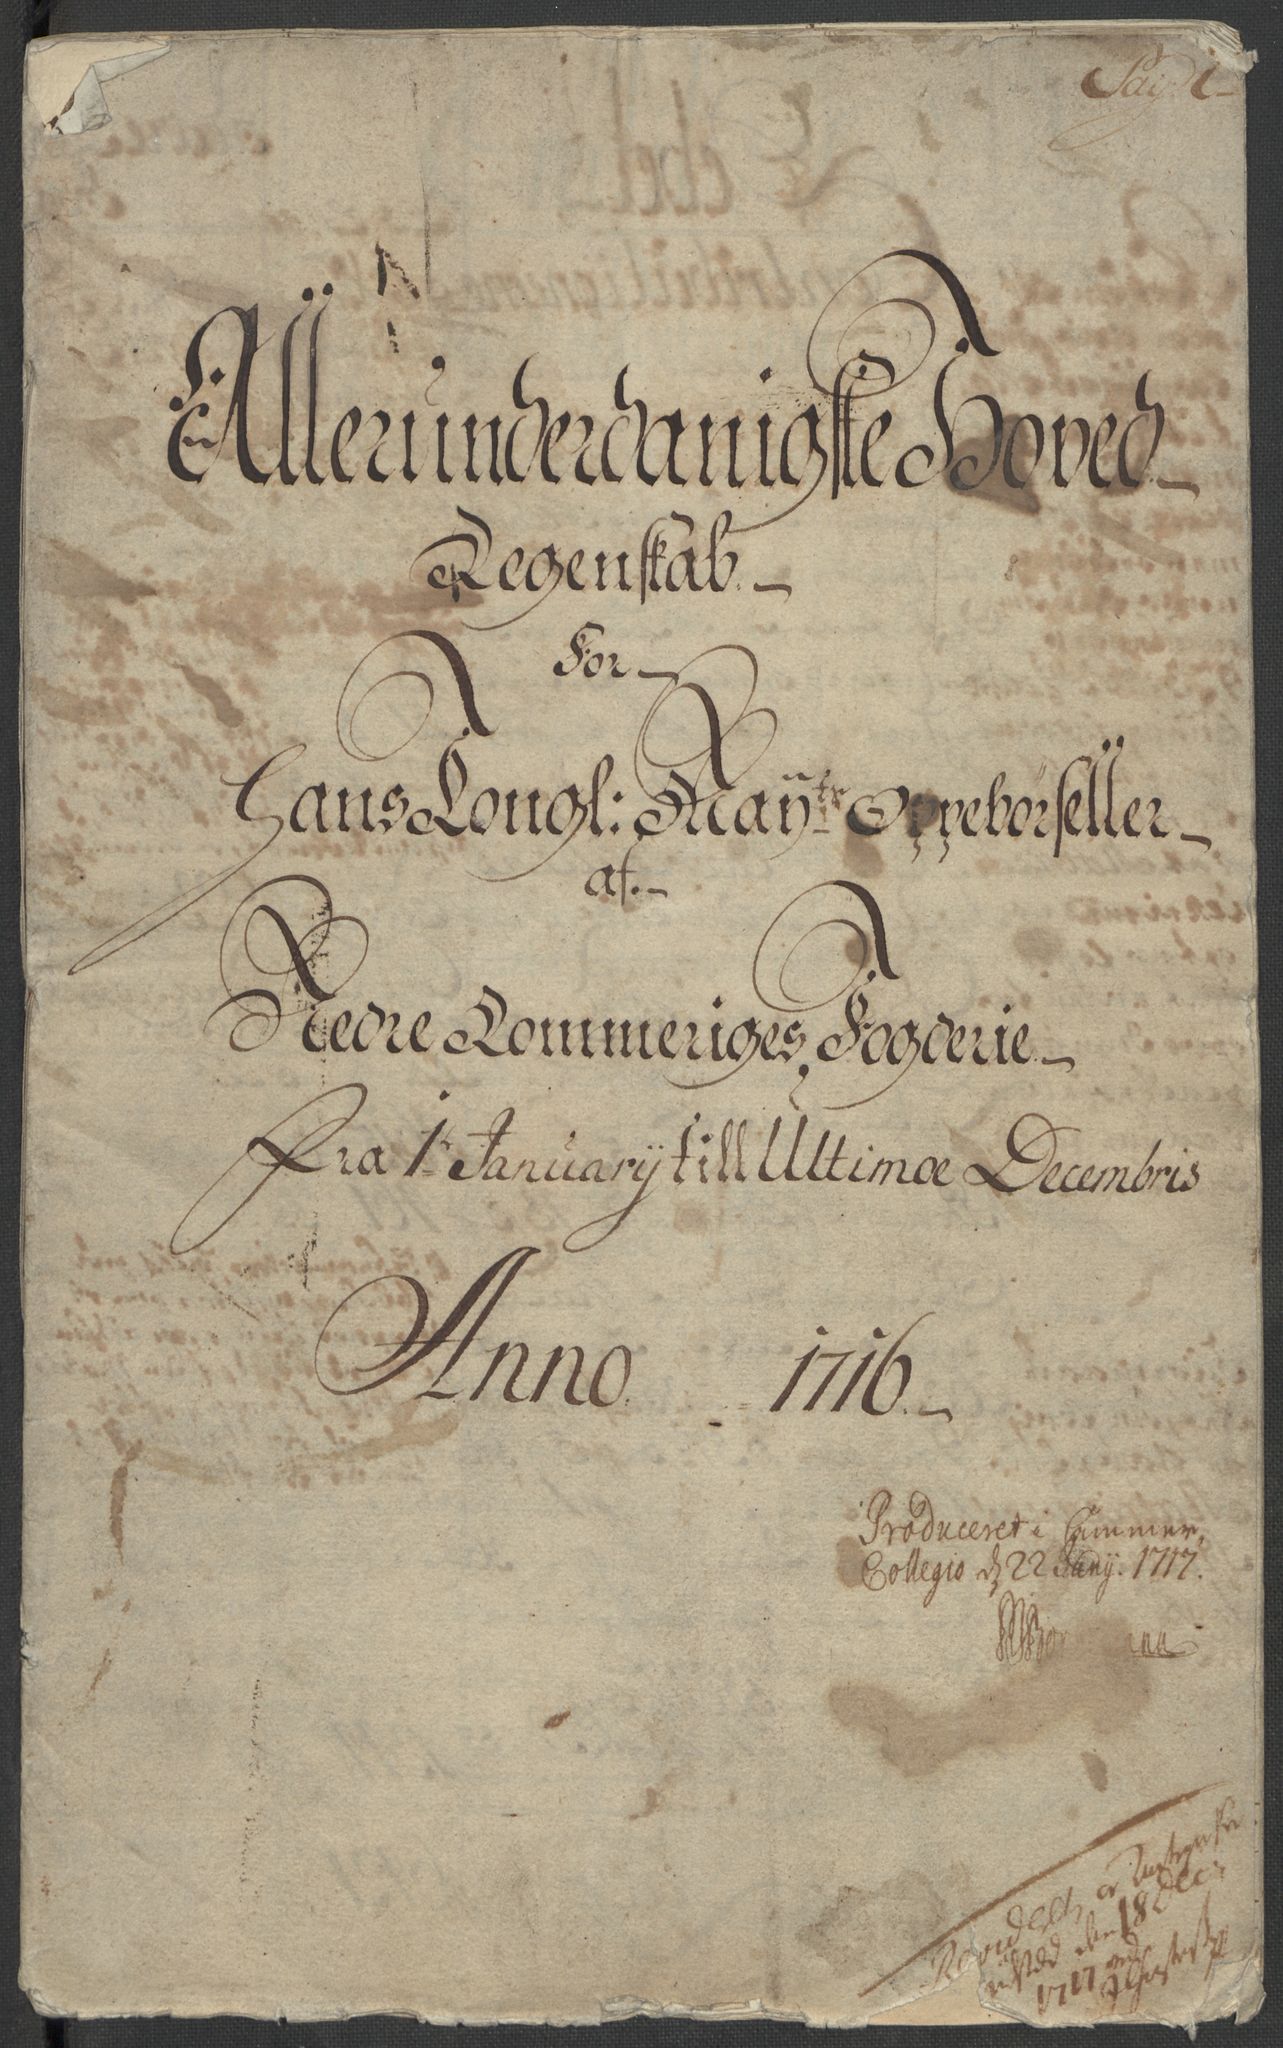 Pag. 1
Allerunderdanigste Hoved
Regenskab
For
Hans Kongl: Mayts Oppebørseller
af
Nedre Rommeriges Fogderie
fra 1 January till Ultimoe Decembris
Anno 1716
Produceret i Cammer
Collegio d 22 Juny. 1717.
Revideret
udsted den 18 Dec:
1717